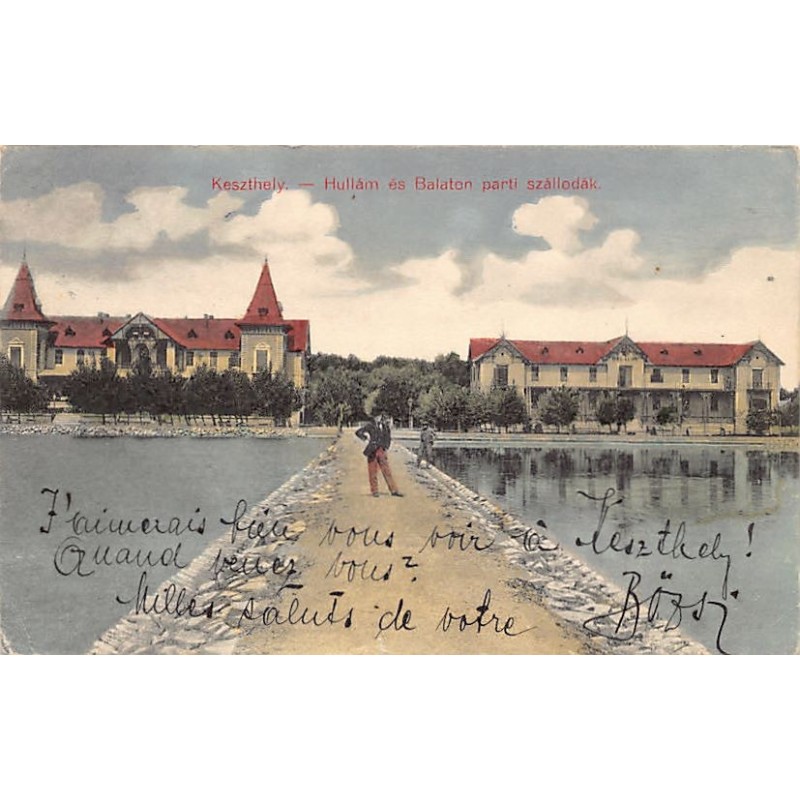 Keszthely. — Hullám és Balaton parti szállodák.
J'aimerais bien vous voir à Keszthely!
Quand venez vous?
Milles saluts de votre Bözsi